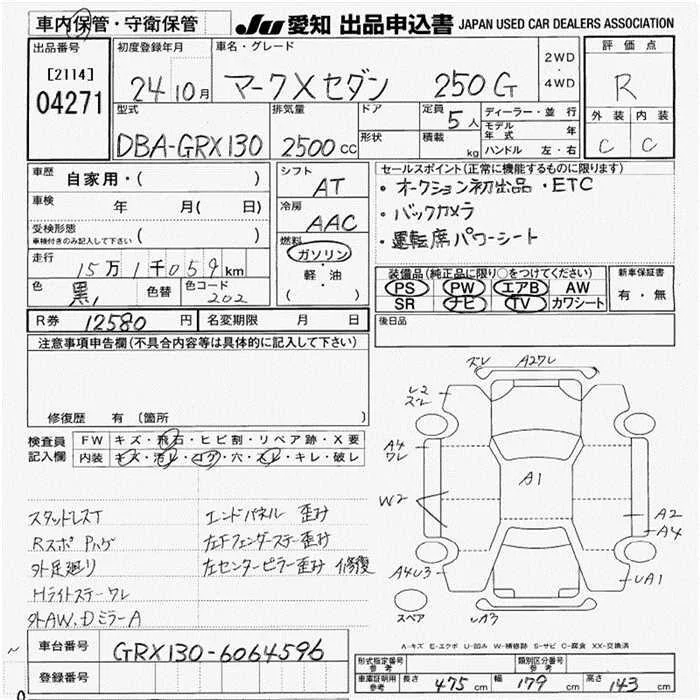 車内保管・守衛保管
JU 愛知 出品申込書 JAPAN USED CAR DEALERS ASSOCIATION
出品番号 [2114] 04271
初度登録年月 24 10月
車名・グレード マークXセダン 250G
2WD・4WD
評価点 R
外装 C 内装 C
型式 DBA-GRX130
排気量 2500cc
ドア
形状
定員 5人
積載 kg
ディーラー・並行
モデル年式 年
ハンドル 左・右
車歴 自家用・( )
車検 年 月( 日)
受検形態 車検付きのみ記入して下さい ( )
走行 15万1千059km
色 黒 色替 色コード 202
シフト AT
冷房 AAC
燃料 ガソリン・軽・油 ( )
セールスポイント(正常に機能するものに限ります)
・オークション初出品・ETC
・バックカメラ
・運転席パワーシート
装備品(純正品に限り○をつけてください)
PS PW エアB AW
SR ナビ TV カワシート
新車保証書 有・無
R券 12580円 名変期限 月 日
後日品
注意事項申告欄(不具合内容等は具体的に記入して下さい)
修復歴 有 〔箇所 〕
検査員記入欄
FW キズ・飛石・ヒビ割・リペア跡・X要
内装 キズ・汚レ・コゲ・穴・スレ・キレ・破レ
スタッドレスT
Rスポ Pハゲ
外足廻り
Hライトステーワレ
外AW、DミラーA
エンドパネル 歪み
左Fフェンダーステー歪み
左センターピラー歪み 修復
ズレ A2ワレ
レ2 ズレ
A4 ワレ
W2
A1
A2
A4
A4U3
UA1
UA3
スペア
A-キズ E-エクボ U-凹み W-補修跡 S-サビ C-腐食 XX-交換済
車台番号 GRX130-6064596
登録番号
形式指定番号 参考
類別区分番号 参考
車庫証明用 参考 長さ 475cm 幅 179cm 高さ 143cm